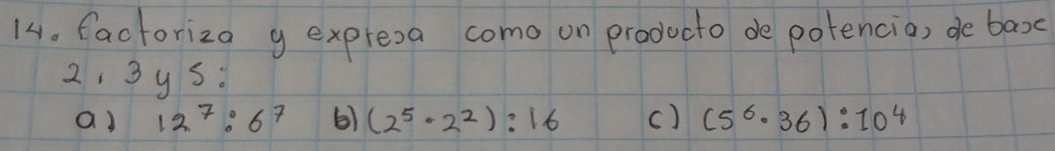 14. factoriza y expresa como un producto de potencias de base
2, 3 y 5:
a) 12⁷:6⁷ b) (2⁵·2²):16 c) (5⁶·36):10⁴